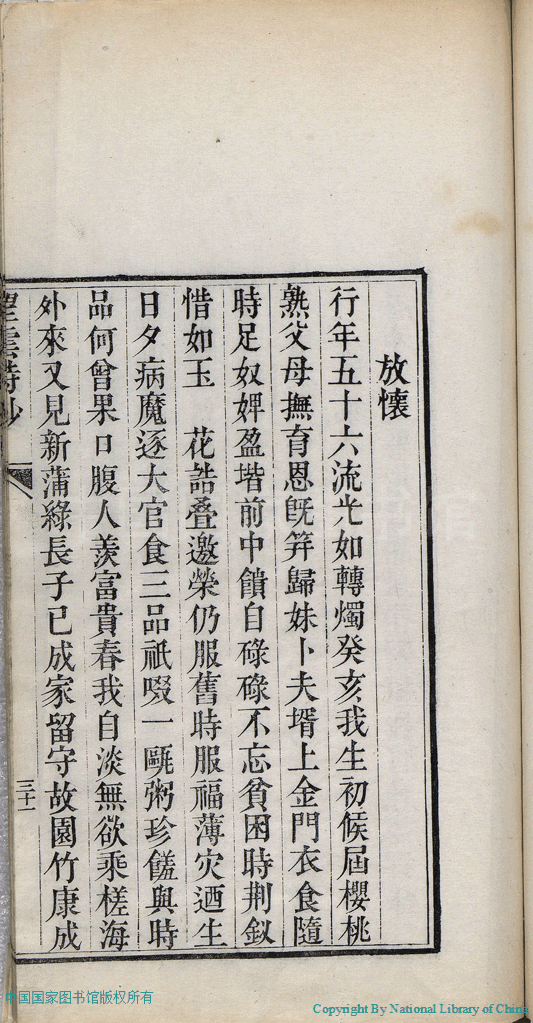 放懷
行年五十六流光如轉燭癸亥我生初候屆櫻桃
熟父母撫育恩旣笄歸妹卜夫壻上金門衣食隨
時足奴婢盈堦前中饋自碌碌不忘貧困時荆釵
惜如玉　花誥疊邀榮仍服舊時服福薄灾迺生
日夕病魔逐大官食三品祇啜一甌粥珍饈與時
品何曾果口腹人羨富貴春我自淡無欲乘槎海
外來又見新蒲綠長子已成家留守故園竹康成
望雲詩鈔
三十一
中国国家图书馆版权所有
Copyright By National Library of China